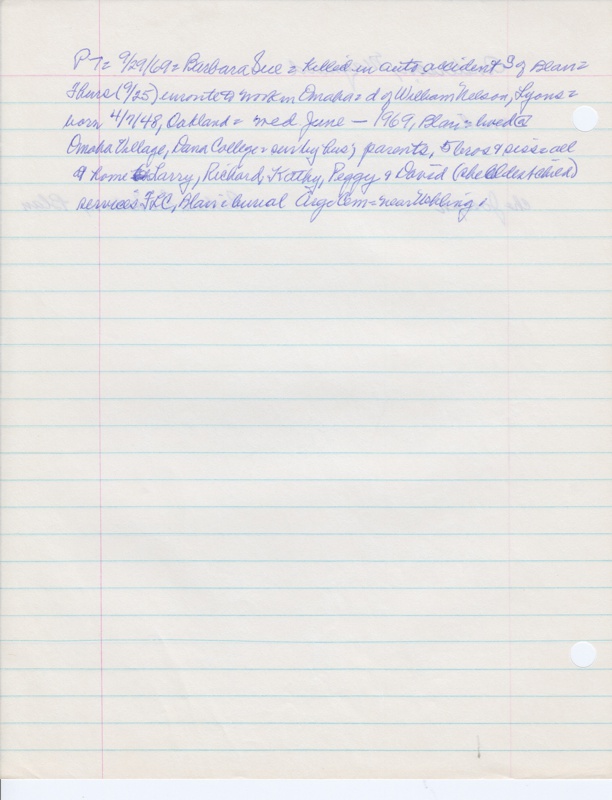 PT= 9/29/69= Barbara Sue = killed in auto accident S of Blair=
Thurs (9/25) enroute to work in Omaha = d of William Nelson, Lyons=
born 4/7/48, Oakland = wed June — 1969, Blair = lived @
Omaha Village, Dana College = surv by hus; parents, 5 bros & sis = all
@ home Larry, Richard, Kathy, Peggy & David (she oldest child)
services FLC, Blair = burial Argo Cem = near Uehling.